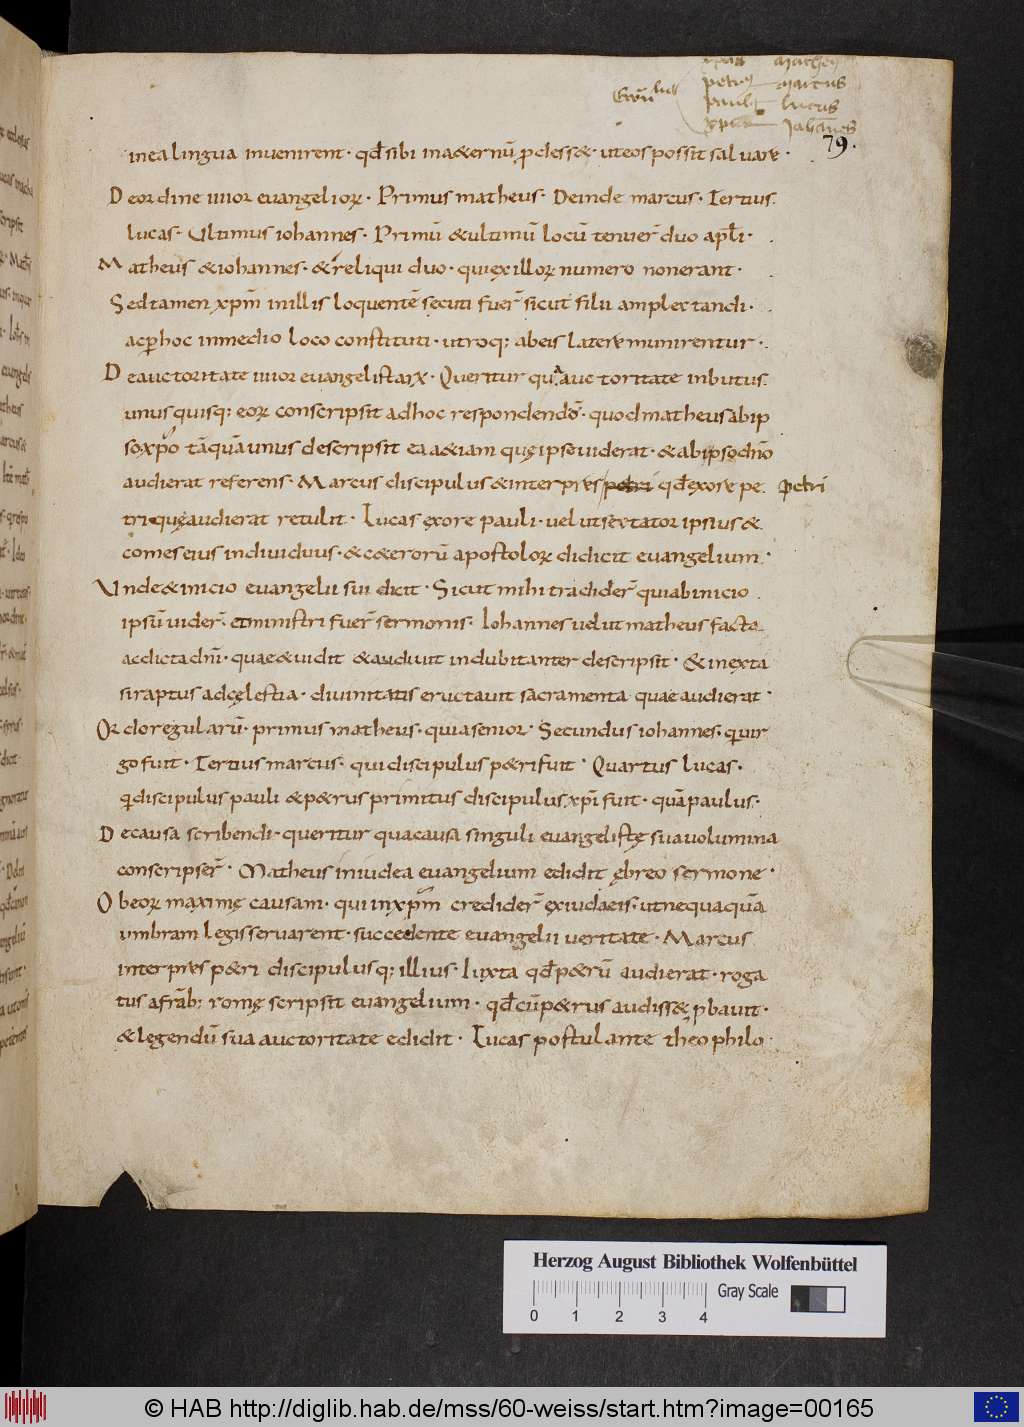 mathei
petrꝰ marcus
Evāⁿ lia paulꝰ lucas
xpūs Johānes
79.
in ea lingua invenirent· qđ sibi in aeternū pdesset· ut eos possit salvare·
De ordine iiiior evangeliorꝝ· Primus matheus· Deinde marcus· Tertius
lucas· Ultimus iohannes· Primū & ultimū locū tenuer̄ duo apłi·
Matheus & iohannes· & reliqui duo· qui ex illorꝝ numero non erant·
Sed tamen xpm̄ in illis loquentē secuti fuer̄ sicut filii amplectandi·
ac ꝑ hoc in medio loco constituti· utroq; ab eis latere munirentur·
De auctoritate iiiior evangelistarꝝ· Queritur qua auctoritate inbutus
unusquisq; eorꝝ conscripsit ad hoc respondendō· quod matheus ab ip
so xp̄o tāquā unus descripsit ea &iam quę ipse viderat· & ab ipso dn̄o
audierat referens· Marcus discipulus & interpres petri qđ ex ore pe petri
tri quę audierat retulit· Lucas ex ore pauli· velut sectator ipsius &
comes eius individuus· & c&erorū apostolorꝝ didicit evangelium·
Unde & inicio evangelii sui dicit· Sicut mihi tradider̄ qui ab inicio
ipsū vider̄· et ministri fuer̄ sermonis· Iohannes velut matheus facta
ac dicta dn̄i· quae & vidit & audivit indubitanter descripsit· & in exta
si raptus ad cęlestia· divinitatis eructavit sacramenta quae audierat·
Ordo regularū· primus matheus· quia senior· Secundus iohannes· q vir
go fuit· Tertius marcus· qui discipulus p&ri fuit· Quartus lucas·
q discipulus pauli & p&rus primitus discipulus xp̄i fuit· quā paulus·
De causa scribendi· queritur qua causa singuli evangelistę sua volumina
conscripser̄· Matheus in iudea evangelium edidit ębreo sermone·
Ob eorꝝ maximę causam· qui in xpm̄ credider̄ ex iudaeis· ut nequaquā
umbram legis servarent· succedente evangelii veritate· Marcus
interpres p&ri discipulusq; illius· Iuxta qđ p&rū audierat· roga
tus a frāb; romę scripsit evangelium· qđ cū p&rus audiss& pbavit·
& legendū sua auctoritate edidit· Lucas postulante theophilo·
Herzog August Bibliothek Wolfenbüttel
0 1 2 3 4 Gray Scale
© HAB http://diglib.hab.de/mss/60-weiss/start.htm?image=00165